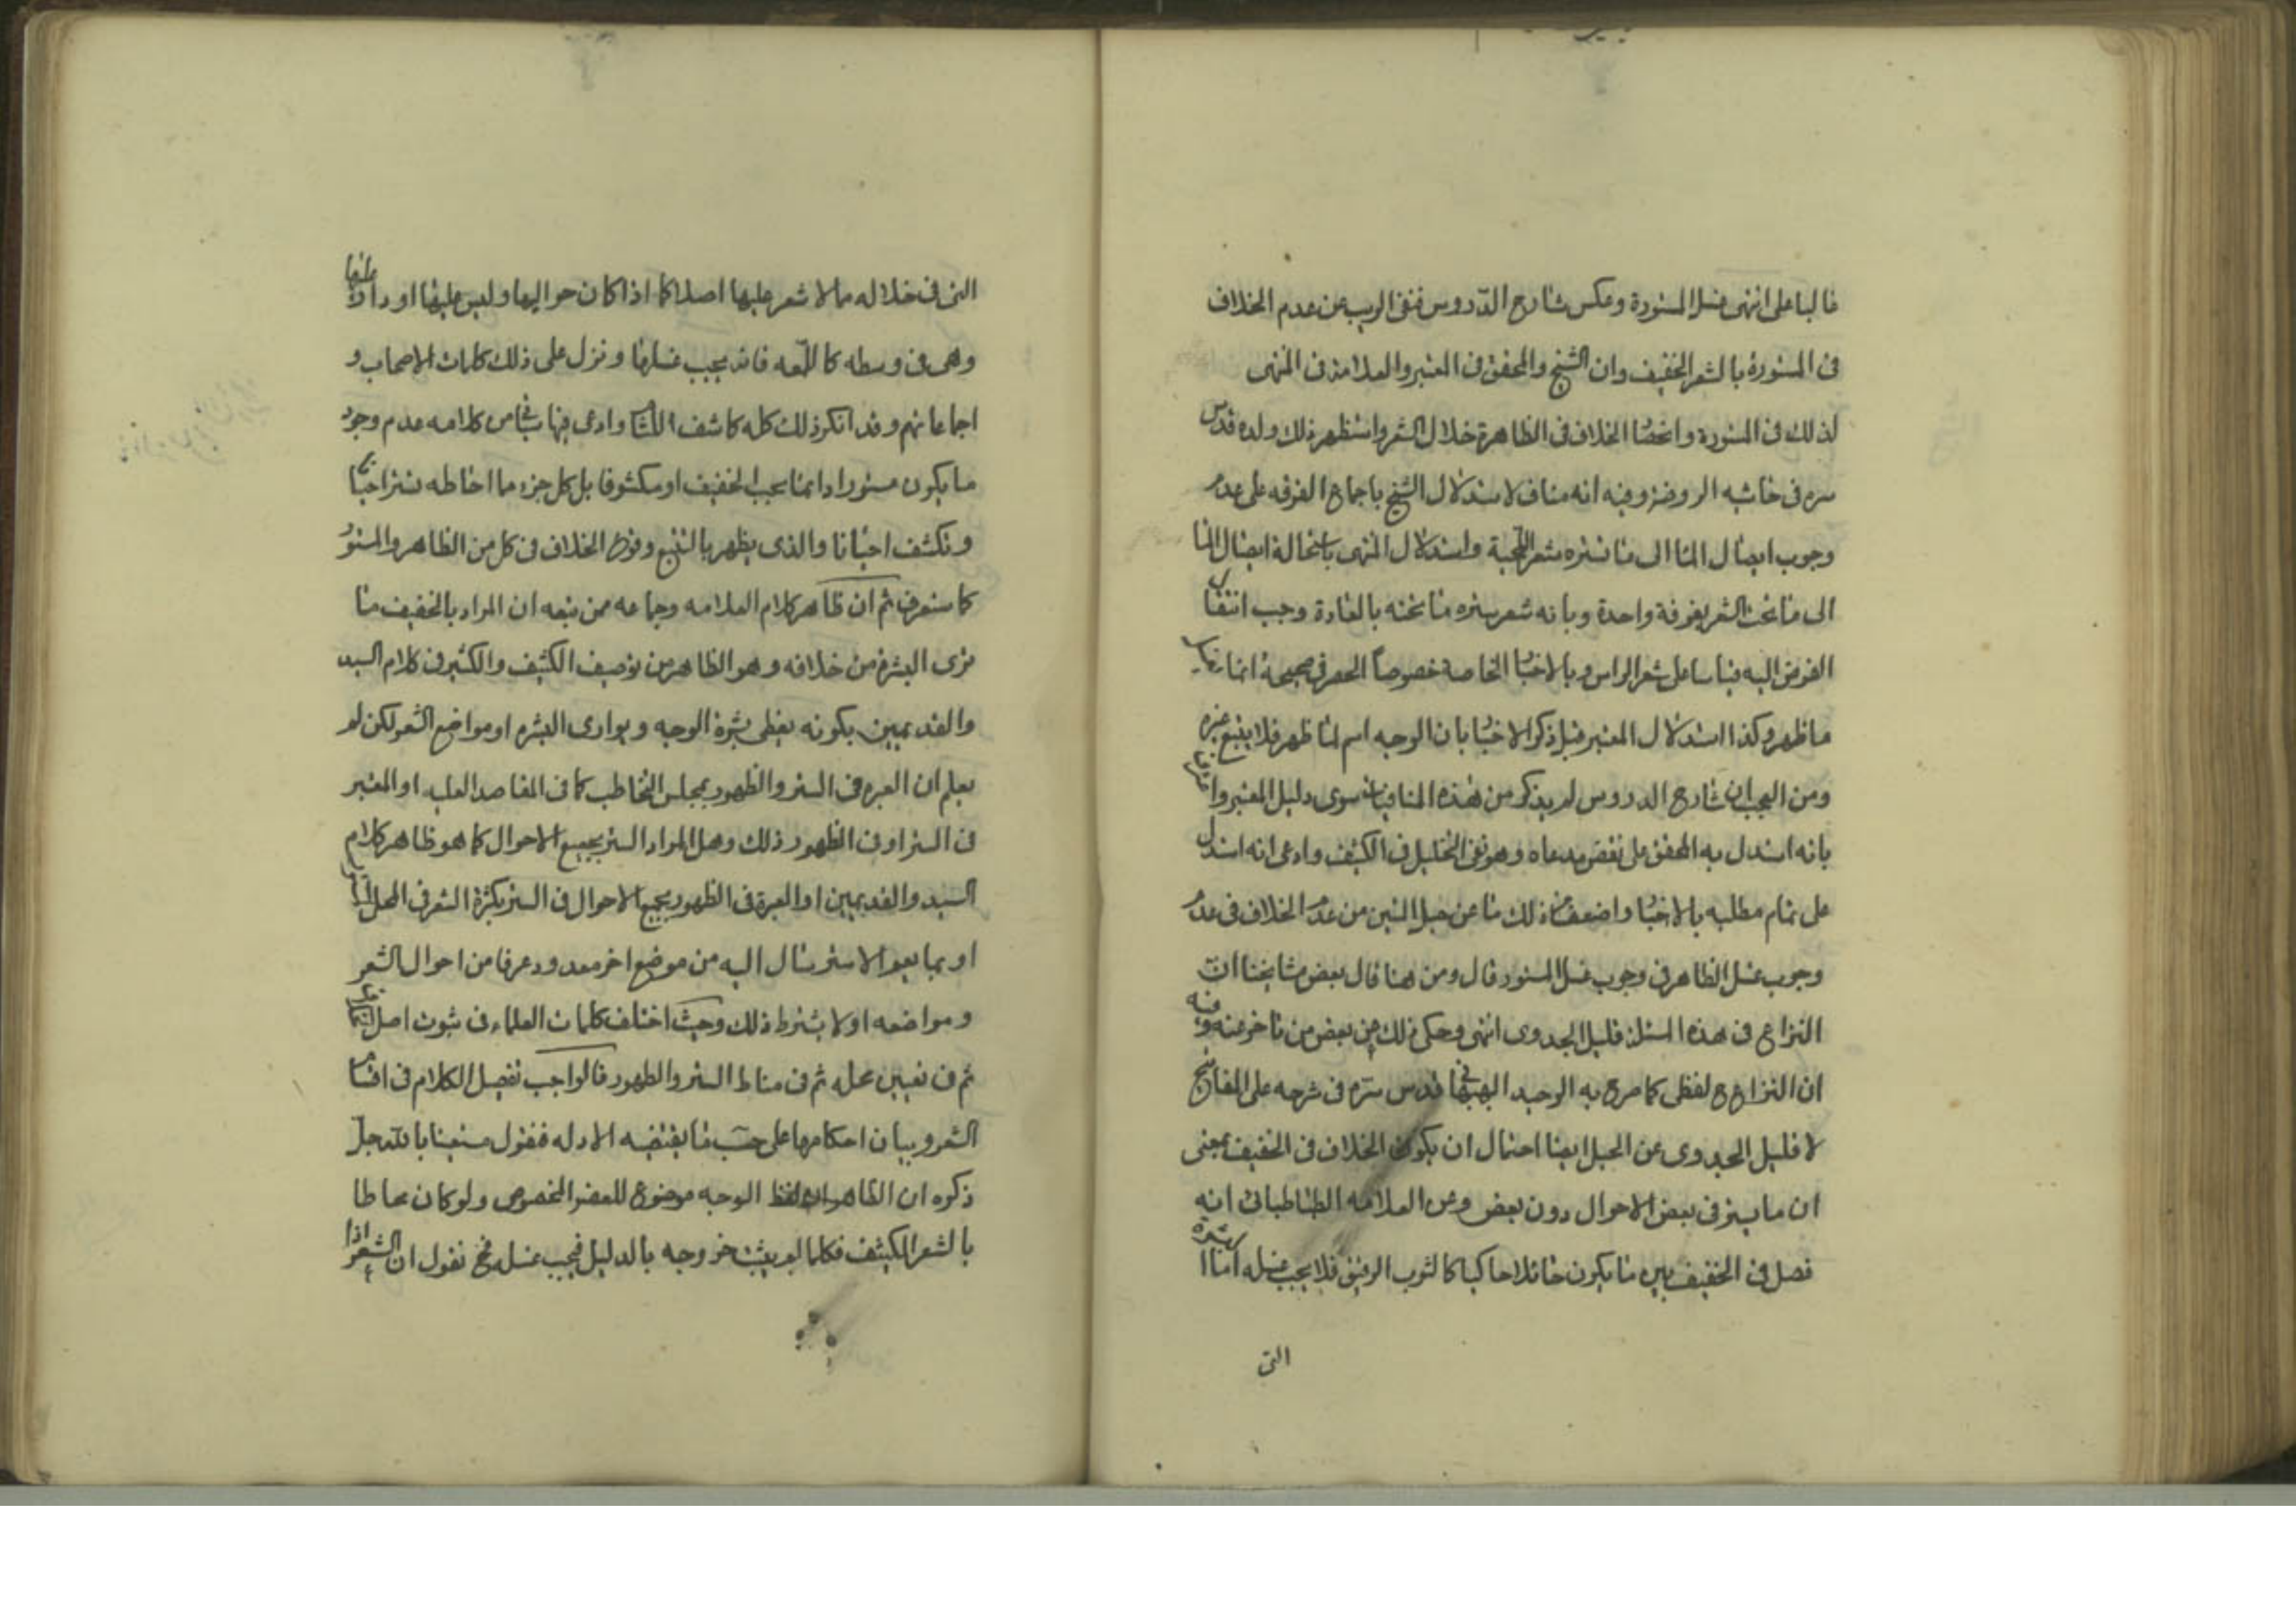 غالبا على انتهى غسل المستورة وعكس شارح الدروس فنفى الريب عن عدم الخلاف
فى المستورة بالشعر الخفيف وان الشيخ والمحقق فى المعتبر والعلامة فى المنتهى
لذلك فى المستورة وانحصا الخلاف فى الظاهرة خلال الشعر واستظهر ذلك ولده قدس
سره فى حاشيه الروضة وفيه انه مناف لاستدلال الشيخ باجماع الفرقه على عدم
وجوب ايصال الما الى ما تستره شعر اللحية واستدلال المنتهى باستحالة ايصال الما
الى ما تحت الشعر بغرفة واحدة وبانه شعر يستره ما تحته بالعادة وجب انتقال
الفرض اليه قياسا على شعر الراس وبالاخبا الخاصة خصوصاً الحصر فى صحيحة انما يغسل
ما ظهر وكذا استدلال المعتبر قبل ذكر الاخبا بان الوجه اسم لما ظهر فلا يتبع غيره
ومن العجب ان شارح الدروس لم يذكر من هذه المنافيات سوى دليل المعتبر واعترف
بانه استدل به المحقق على نقض مدعاه وهو نفى التخليل فى الكثيف وادعى انه استدل
على تمام مطلبه بالاخبا واضعف من ذلك ما عن حبل المتين من عدم الخلاف فى عدم
وجوب غسل الظاهر فى وجوب غسل المستور قال ومن هنا قال بعض مشايخنا ان
النزاع فى هذه المسئلة قليل الجدوى انتهى وحكى ذلك عن بعض من تاخر عنه وفيه
ان النزاع ح لفظى كما صرح به الوحيد البهبهانى قدس سره فى شرحه على المفاتيح
لا قليل الجدوى عن الحبل ايضا احتمال ان يكون الخلاف فى الخفيف بمعنى
ان ما يستر فى بعض الاحوال دون بعض وعن العلامه الطباطبائى انه
فصل فى الخفيف بين ما يكون حائلا حاكيا كالثوب الرقيق فلا يجب غسله اما البشرة
التى
التى فى خلاله مما لا شعر عليها اصلا كما اذا كان حواليها وليس عليها او دا عليها
وهى فى وسطه كاللمعه فانه يجب غسلها ونزل على ذلك كلمات الاصحاب و
اجماعاتهم وقد انكر ذلك كله كاشف اللثام وادعى فيما ياتى من كلامه عدم وجود
ما يكون مستورا دائما يجب الخفيف او مكشوفا بل كل جزء مما احاطه تستر احيانا
وتكشف احيانا والذى يظهر بالتتبع وقوع الخلاف فى كل من الظاهر والمستور
كما ستعرف ثم ان ظاهر كلام العلامه وجماعه ممن تبعه ان المراد بالخفيف ما
ترى البشرة من خلافه وهو الظاهر من توصيف الكثيف والكثير فى كلام السيد
والقديمين بكونه يغطى بشرة الوجه ويوارى البشره او مواضع الشعر لكن لم
يعلم ان العبره فى الستر والظهور بمجلس التخاطب كما فى المقاصد العليه او المعتبر
فى الستر او فى الظهور ذلك وهل المراد الستر بجميع الاحوال كما هو ظاهر كلام
السيد والقديمين او العبرة فى الظهور بجميع الاحوال فى الستر بكثرة الشعر فى المحل
او بما يعم الاسترسال اليه من موضع اخر معدود عرفا من احوال الشعر
ومواضعه او لا يشترط ذلك وحيث اختلف كلمات العلماء فى ثبوت اصل
ثم فى تعيين محله ثم فى مناط الستر والظهور فالواجب تفصيل الكلام فى اقسام
الشعر وبيان احكامها على حسب ما يقتضيه الادله فنقول مستعينا بالله جل
ذكره ان الظاهر ان لفظ الوجه موضوع للعضو المخصوص ولو كان محاطا
بالشعر الكثيف فكلما لم يثبت خروجه بالدليل فيجب غسله فح نقول ان الشعر اذا